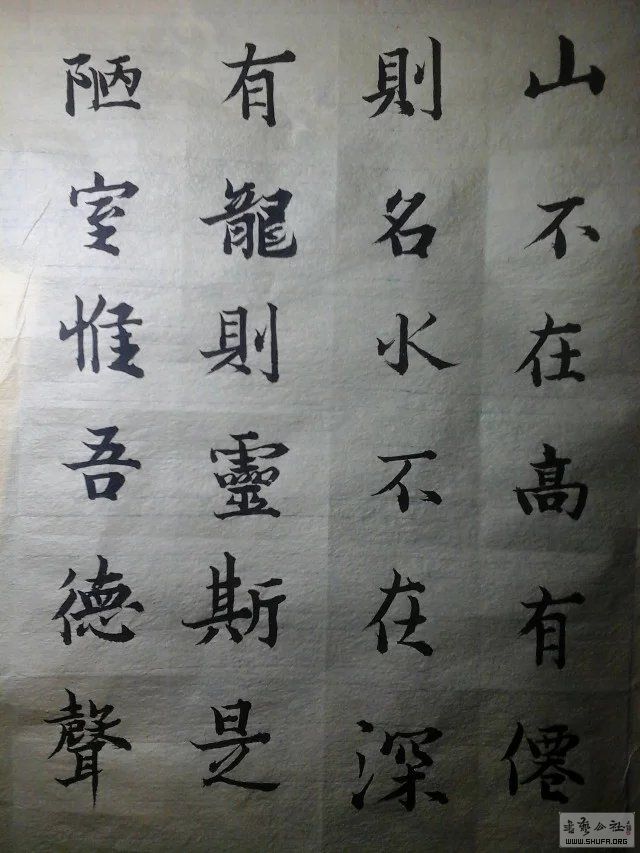 山不在高有僊
則名水不在深
有龍則靈斯是
陋室惟吾德聲
書藝公社
WWW.SHUFA.ORG